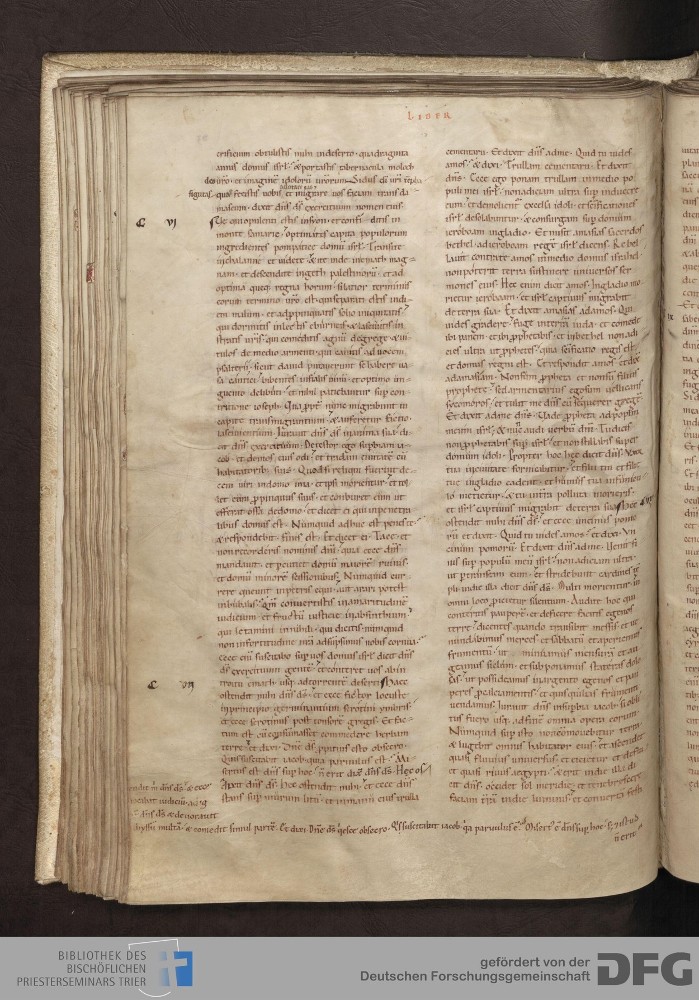 LIBER
crificium obtulistis mihi in deserto quadraginta
annis domus isrl & portastis tabernacula moloch
deo uro et imaginē idolorū urorum Sidus di uri rempha
figuras quas fecistis uobis et migrare uos faciam trans da
mascum dixit dns ds exercituum nomen eius
C VI
Ve qui opulenti estis in syon et confi ditis in
monte samarie optimates capita populorum
ingredientes pompatice domū isrl Transite
in chalanne et uidete & ite inde in emath mag
nam et descendite in geth palestinorū et ad
optima queq; regna horum si latior terminus
eorum termino uro est qui separati estis in di
em malum et adpropinquatis solio iniquitatis
qui dormitis in lectis eburneis & lasciuitis in
stratis uris qui comeditis agnū de grege & ui
tulos de medio armenti qui canitis ad uocem
psalterii sicut dauid putauerunt se habere ua
sa cantici bibentes in fialis uinū et optimo un
guento delibuti et nihil patiebantur sup con
tritione ioseph Qua ppt nunc migrabunt in
capite transmigrantium & auferetur factio
lasciuientium Iurauit dns ds in anima sua di
cit dns ds exercituum Detestor ego supbiam ia
cob et domos eius odi et tradam ciuitatē cū
habitatorib; suis Quod si reliqui fuerint de
cem uiri in domo una et ipsi morientur et tol
let eum propinquus suus et conburet eum ut
efferat ossa de domo et dicet ei qui in penetra
libus domus est Numquid adhuc est penes te
& respondebit finis est Et dicet ei Tace et
non recorderis nominis dni quia ecce dns
mandauit et percutiet domū maiorē ruinis
et domū minorē scissionibus Numquid cur
rere queunt in petris equi aut arari potest
in bubalis Qm conuertistis in amaritudinē
iudicium et fructū iusticie in absinthium
qui letamini in nihili qui dicitis numquid
non in fortitudine nra adsupsimus nobis cornua
Ecce enī suscitabo sup uos domus isrl dicit dns
ds exercituum gentē et conteret uos ab in
troitu emath usq; ad torrentē deserti Haec
C VII
ostendit mihi dns ds et ecce fictor locuste
in principio germinantium serotini ymbris
et ecce serotinus post tonsorē gregis Et fac
tum est cū consūmasset commedere herbam
terre et dixi Dne ds ppitius esto obsecro
Quis suscitabit iacob quia paruulus est Mi
sertus est dns sup hoc n erit dixit dns ds Hec os
dns ds hec ostendit mihi et ecce dns
stans sup murum litū et in manu eius trulla
cementarii Et dixit dns ad me Quid tu uides
amos & dixi Trullam cementarii Et dixit
dns Ecce ego ponam trullam in medio po
puli mei isrl non adiciam ultra sup inducere
eum & demolientē excelsa idoli et scificationes
isrl desolabuntur & consurgam sup domum
ieroboam in gladio Et misit amasias sacerdos
bethel ad ieroboam regē isrl dicens Rebel
lauit contra te amos in medio domus israhel
non poterit terra sustinere uniuersos ser
mones eius Hec enim dicit amos In gladio mo
rietur ieroboam et isrl captiuus migrabit
de terra sua Et dixit amasias ad amos Qui
uides gradere fuge in terrā iuda et comede
ibi panem et ibi prophetabis et in bethel non adi
cies ultra ut pphetes quia scificatio regis est
et domus regni est Et respondit amos et dix
ad amasiam Non sum ppheta et non sū filius
prophete sed armentarius ego sum uellicans
sycomoros et tulit me dns cū sequerer gregē
Et dixit ad me dns Uade ppheta ad poplm
meum isrl & nūc audi uerbū dni Tu dicis
non pphetabis sup isrl et non stillabis super
domum idoli Propter hoc hec dicit dns Uxor
tua in ciuitate fornicabitur et filii tui et filie
tue in gladio cadent et humus tua in funicu
lo metietur & tu in terra polluta morieris
et isrl captiuus migrabit de terra sua Haec
ostendit mihi dns ds et ecce uncinus pomo
rū et dixit Quid tu uides amos et dixi Un
cinum pomorū Et dixit dns ad me Uenit fi
nis sup populū meū isrl non adiciam ultra
ut ptranseam eum et stridebunt cardines tē
pli in die illa dicit dns ds Multi morientur in
omni loco picietur silentium Audite hoc qui
conteritis pauperē et deficere facitis egenos
terre dicentes quando transibit messis et ue
nundabimus merces et sabbatū et aperiemus
frumentū ut minuamus mensurā et au
geamus siclum et supponamus stateras dolo
sas ut possideamus in argento egenos et pau
peres p calciamentis et quisquilias frumenti
uendamus Iurauit dns in supbia iacob si obli
tus fuero usq; ad finē omnia opera eorum
Numquid sup isto non cōmouebitur terra
& lugebit omnis habitator eius et ascendet
quasi fluuius uniuersus et eicietur et defluet
quasi riuus aegypti & erit in die illa di
cit dns occidet sol meridie et tenebrescere
faciam terrā in die luminis et conuertā festi
byssū multā & comedit simul partē Et dixi Dne ds qesce obsecro Qs suscitabit iacob qa paruulus ē Misert ē dns sup hoc s; istud
n erit
BIBLIOTHEK DES
BISCHÖFLICHEN
PRIESTERSEMINARS TRIER
gefördert von der
Deutschen Forschungsgemeinschaft
DFG